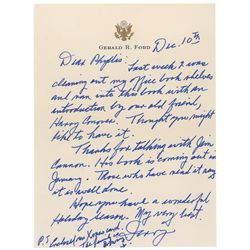 GERALD R. FORD
Dec. 10th
Dear Phyllis:
Last week I was
cleaning out my Nice book shelves
and ran into this book with an
introduction by our old friend,
Harry Conover. Thought you might
like to have it.
Thanks for talking with Jim
Cannon. His book is coming out in
January. Those who have read it say
it is well done.
Hope you have a wonderful
Holiday season. My very best.
Jerry
P.S.